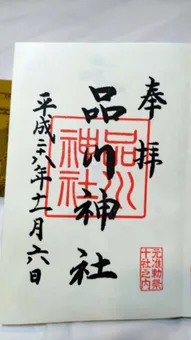 奉拝
品川神社
平成二十八年十一月六日
品川神社
元准勅祭
十社之内